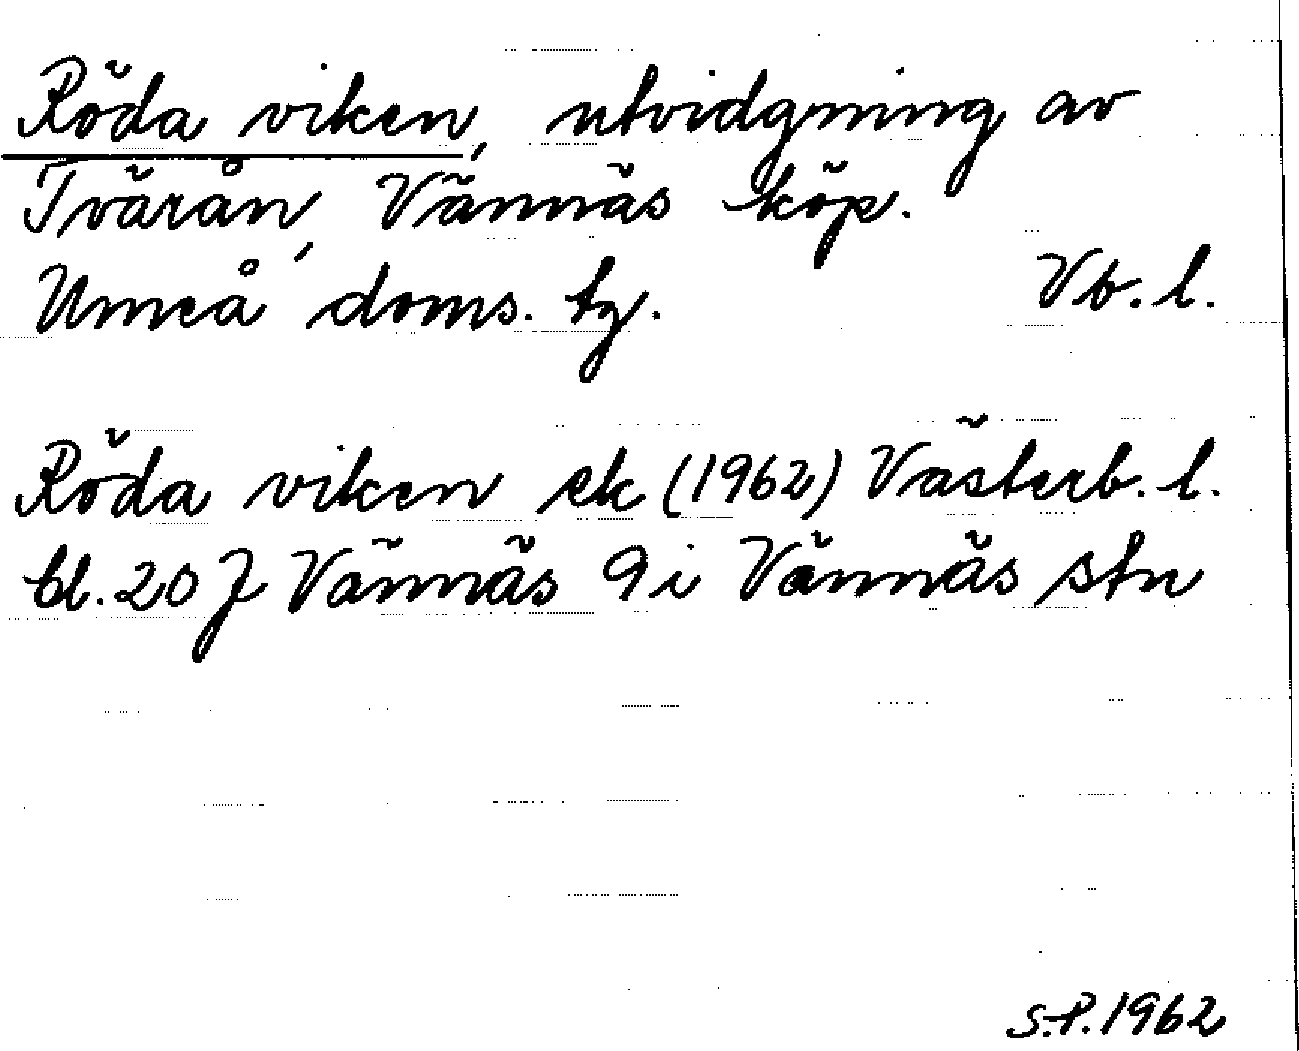 Röda viken, utvidgning av
Tvärån, Vännäs köp.
Umeå doms. tg. Vb. l.
Röda viken ek (1962) Västerb. l.
bl. 20 J Vännäs 9 i Vännäs stn
S.P. 1962